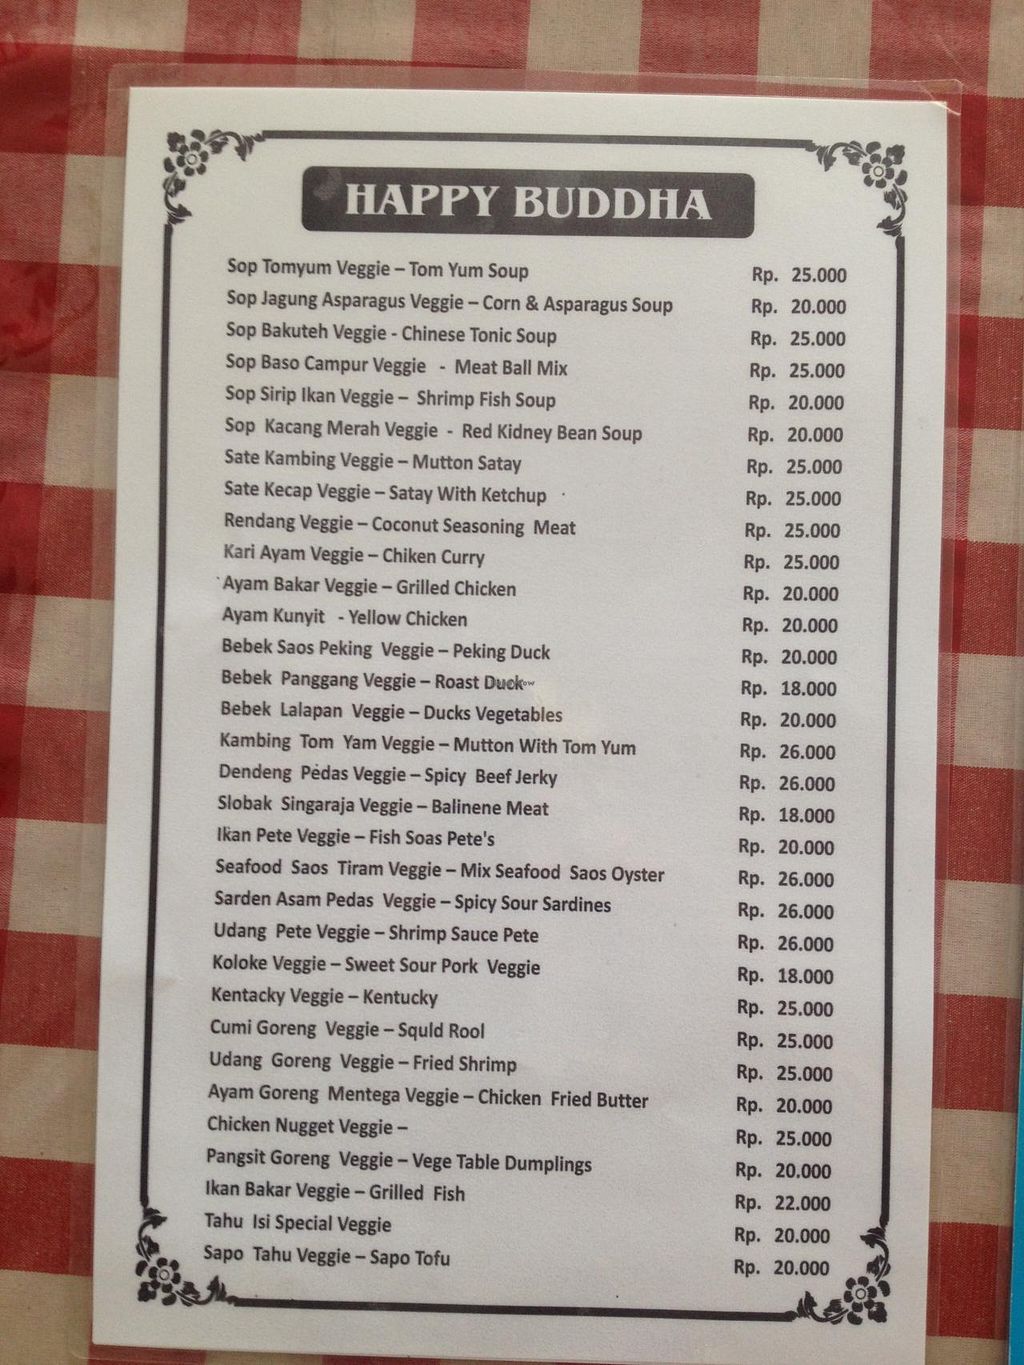 HAPPY BUDDHA
Sop Tomyum Veggie – Tom Yum Soup Rp. 25.000
Sop Jagung Asparagus Veggie – Corn & Asparagus Soup Rp. 20.000
Sop Bakuteh Veggie - Chinese Tonic Soup Rp. 25.000
Sop Baso Campur Veggie - Meat Ball Mix Rp. 25.000
Sop Sirip Ikan Veggie – Shrimp Fish Soup Rp. 20.000
Sop Kacang Merah Veggie - Red Kidney Bean Soup Rp. 20.000
Sate Kambing Veggie – Mutton Satay Rp. 25.000
Sate Kecap Veggie – Satay With Ketchup Rp. 25.000
Rendang Veggie – Coconut Seasoning Meat Rp. 25.000
Kari Ayam Veggie – Chiken Curry Rp. 25.000
Ayam Bakar Veggie – Grilled Chicken Rp. 20.000
Ayam Kunyit - Yellow Chicken Rp. 20.000
Bebek Saos Peking Veggie – Peking Duck Rp. 20.000
Bebek Panggang Veggie – Roast Duck Rp. 18.000
Bebek Lalapan Veggie – Ducks Vegetables Rp. 20.000
Kambing Tom Yam Veggie – Mutton With Tom Yum Rp. 26.000
Dendeng Pedas Veggie – Spicy Beef Jerky Rp. 26.000
Slobak Singaraja Veggie – Balinene Meat Rp. 18.000
Ikan Pete Veggie – Fish Soas Pete's Rp. 20.000
Seafood Saos Tiram Veggie – Mix Seafood Saos Oyster Rp. 26.000
Sarden Asam Pedas Veggie – Spicy Sour Sardines Rp. 26.000
Udang Pete Veggie – Shrimp Sauce Pete Rp. 26.000
Koloke Veggie – Sweet Sour Pork Veggie Rp. 18.000
Kentacky Veggie – Kentucky Rp. 25.000
Cumi Goreng Veggie – Squld Rool Rp. 25.000
Udang Goreng Veggie – Fried Shrimp Rp. 25.000
Ayam Goreng Mentega Veggie – Chicken Fried Butter Rp. 20.000
Chicken Nugget Veggie – Rp. 25.000
Pangsit Goreng Veggie – Vege Table Dumplings Rp. 20.000
Ikan Bakar Veggie – Grilled Fish Rp. 22.000
Tahu Isi Special Veggie Rp. 20.000
Sapo Tahu Veggie – Sapo Tofu Rp. 20.000